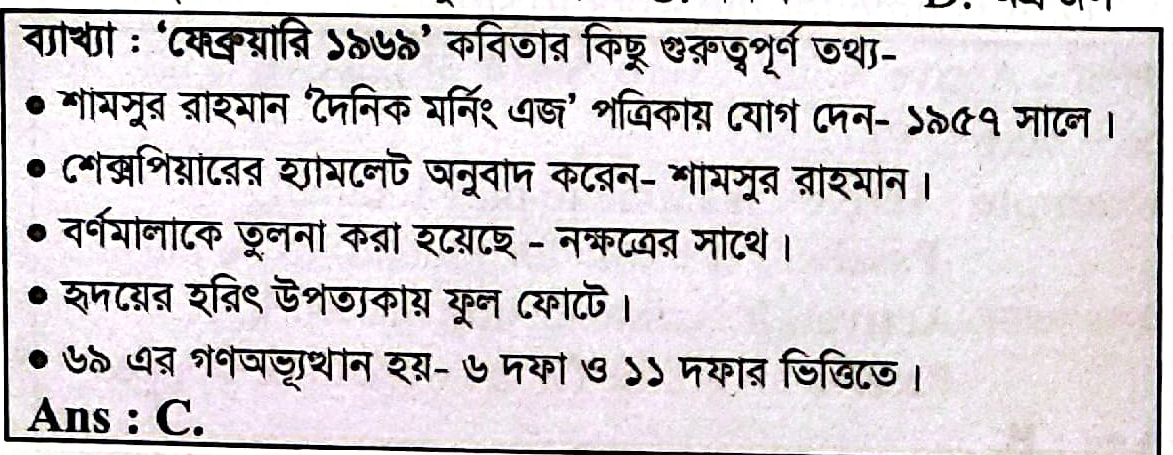 ব্যাখ্যা : ‘ফেব্রুয়ারি ১৯৬৯’ কবিতার কিছু গুরুত্বপূর্ণ তথ্য-
• শামসুর রাহমান ‘দৈনিক মর্নিং এজ’ পত্রিকায় যোগ দেন- ১৯৫৭ সালে।
• শেক্সপিয়ারের হ্যামলেট অনুবাদ করেন- শামসুর রাহমান।
• বর্ণমালাকে তুলনা করা হয়েছে - নক্ষত্রের সাথে।
• হৃদয়ের হরিৎ উপত্যকায় ফুল ফোটে।
• ৬৯ এর গণঅভ্যূত্থান হয়- ৬ দফা ও ১১ দফার ভিত্তিতে।
Ans : C.